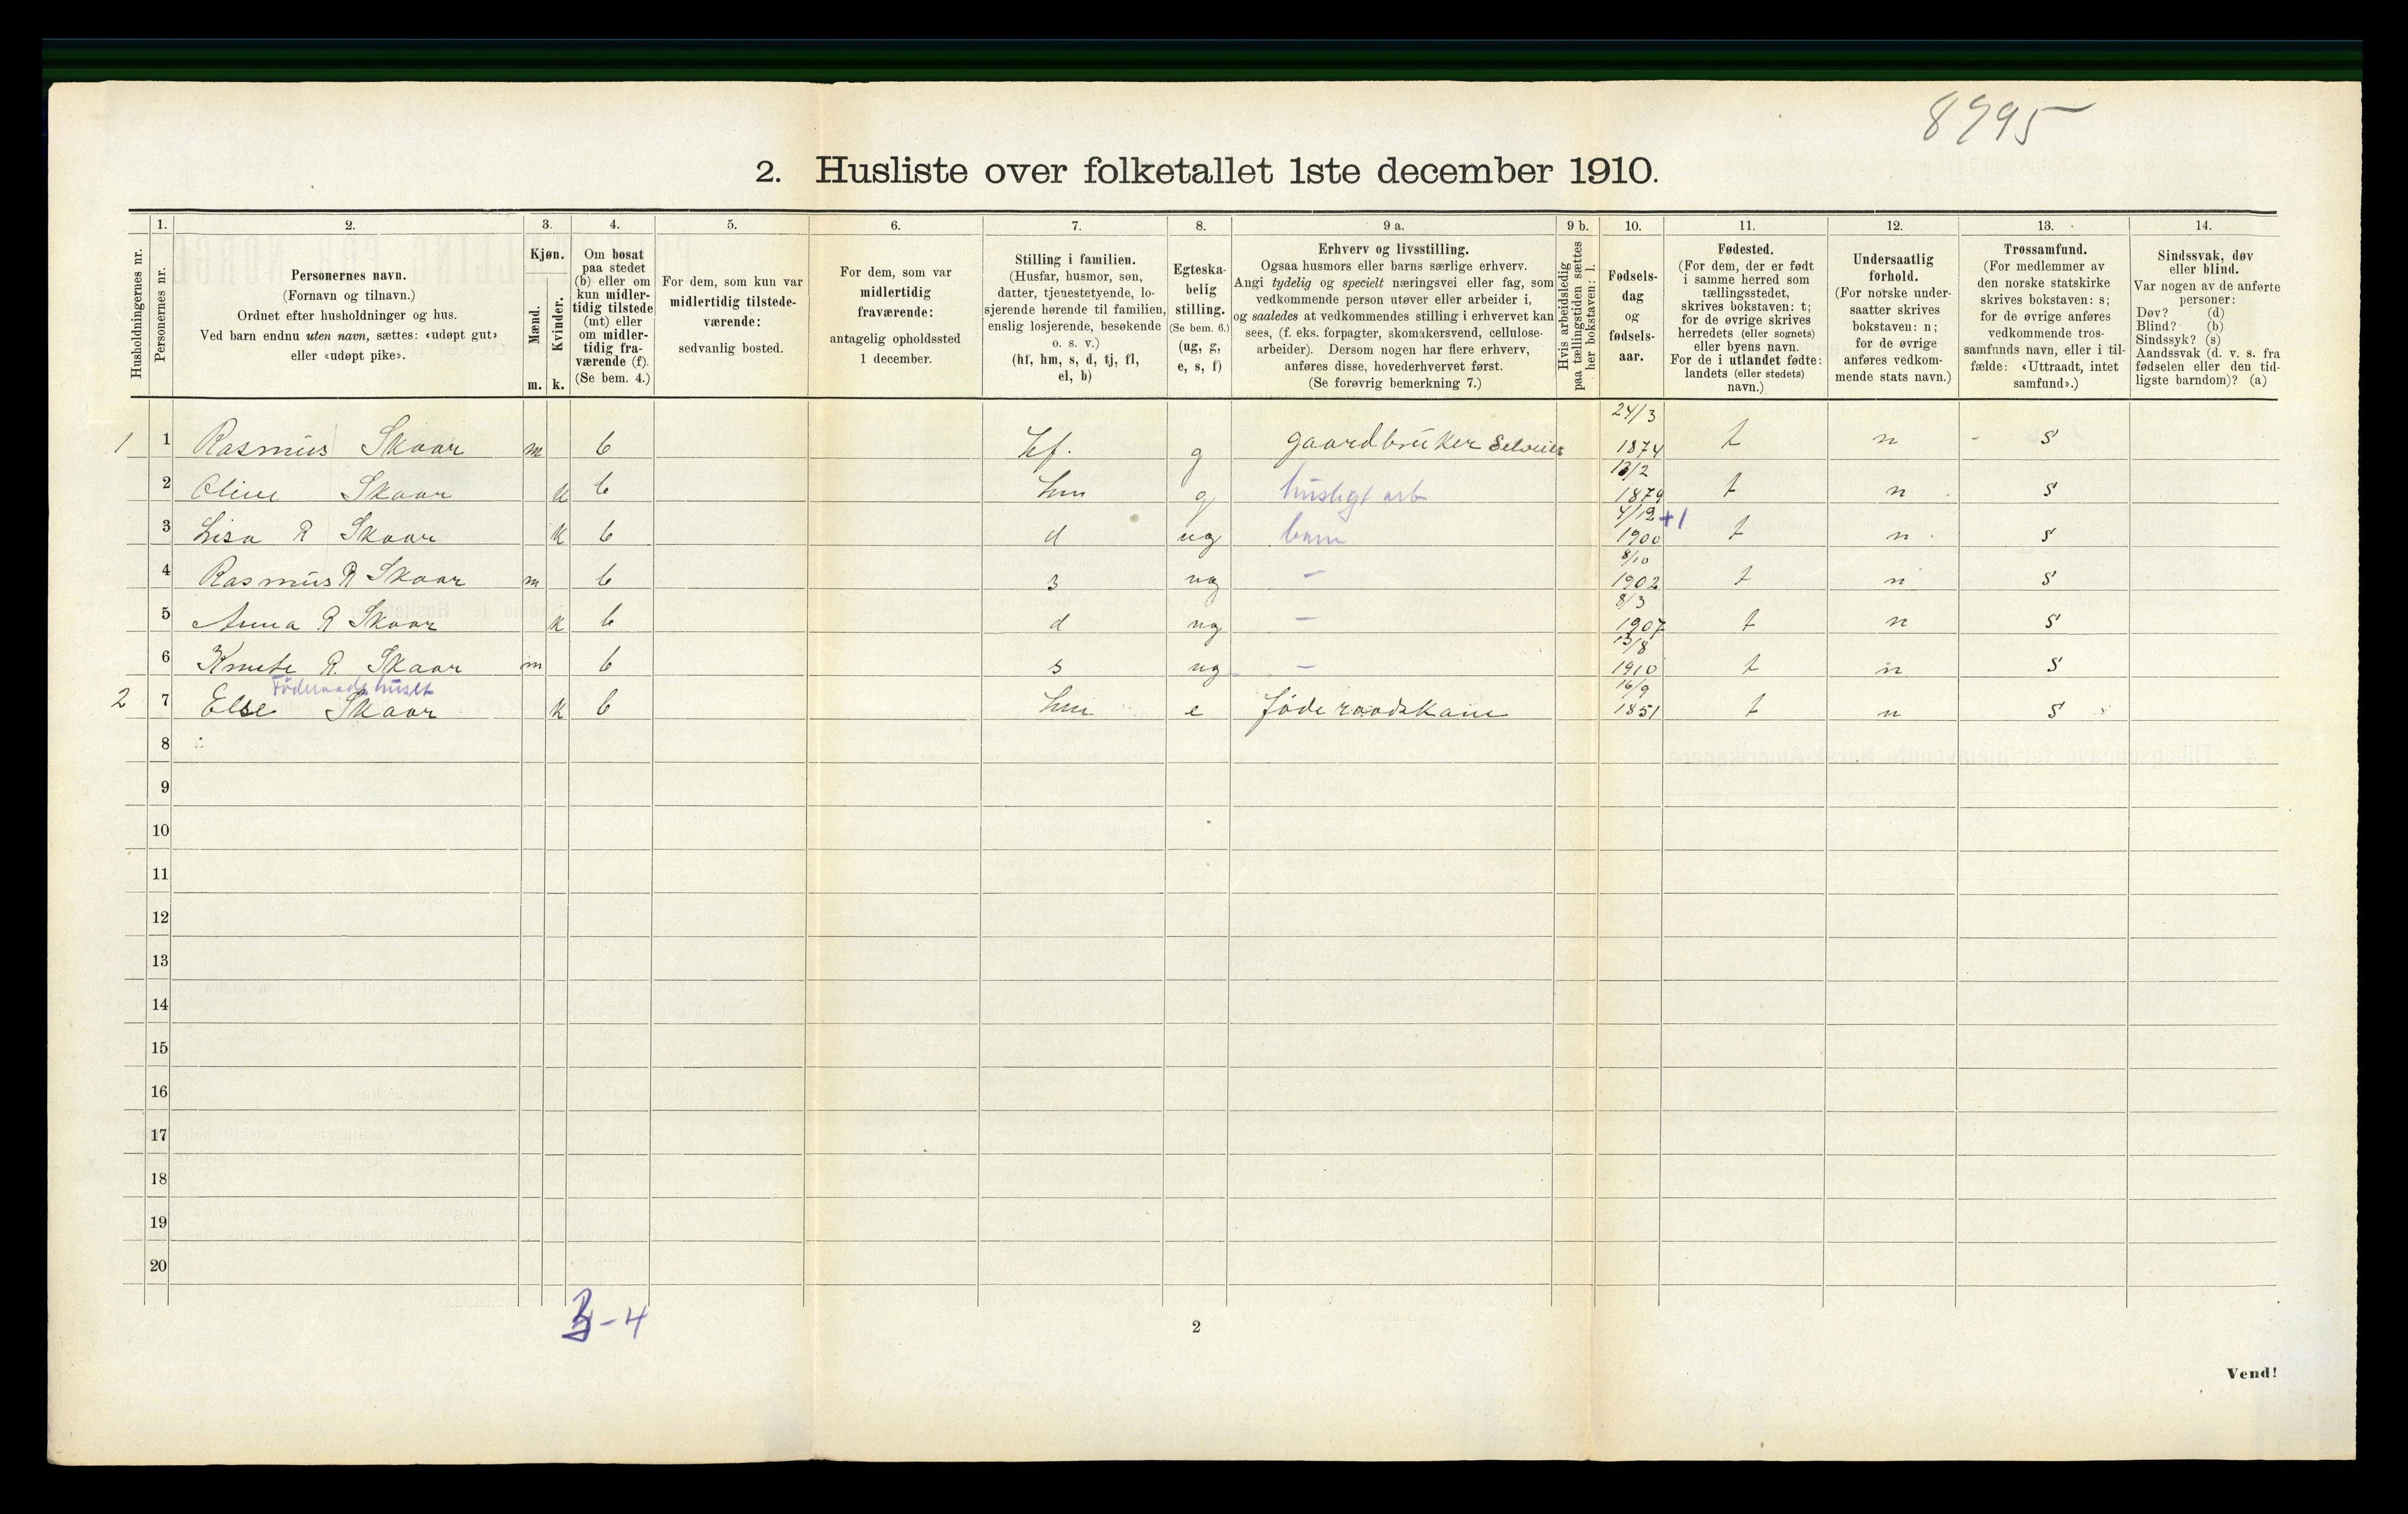 8995
2. Husliste over folketallet 1ste december 1910.
Husholdningernes nr.
1. Personernes nr.
2. Personernes navn.
(Fornavn og tilnavn.)
Ordnet efter husholdninger og hus.
Ved barn endnu uten navn, sættes: «udøpt gut»
eller «udøpt pike».
3. Kjøn.
Mænd. m.
Kvinder. k.
4. Om bosat
paa stedet
(b) eller om
kun midler-
tidig tilstede
(mt) eller
om midler-
tidig fra-
værende (f).
(Se bem. 4.)
5. For dem, som kun var
midlertidig tilstede-
værende:
sedvanlig bosted.
6. For dem, som var
midlertidig
fraværende:
antagelig opholdssted
1 december.
7. Stilling i familien.
(Husfar, husmor, søn,
datter, tjenestetyende, lo-
sjerende hørende til familien,
enslig losjerende, besøkende
o. s. v.)
(hf, hm, s, d, tj, fl,
el, b)
8. Egteska-
belig
stilling.
(Se bem. 6.)
(ug, g,
e, s, f)
9 a. Erhverv og livsstilling.
Ogsaa husmors eller barns særlige erhverv.
Angi tydelig og specielt næringsvei eller fag, som
vedkommende person utøver eller arbeider i,
og saaledes at vedkommendes stilling i erhvervet kan
sees, (f. eks. forpagter, skomakersvend, cellulose-
arbeider). Dersom nogen har flere erhverv,
anføres disse, hovederhvervet først.
(Se forøvrig bemerkning 7.)
9 b. Hvis arbeidsledig
paa tællingstiden sættes
her bokstaven: l.
10. Fødsels-
dag
og
fødsels-
aar.
11. Fødested.
(For dem, der er født
i samme herred som
tællingsstedet,
skrives bokstaven: t;
for de øvrige skrives
herredets (eller sognets)
eller byens navn.
For de i utlandet fødte:
landets (eller stedets)
navn.)
12. Undersaatlig
forhold.
(For norske under-
saatter skrives
bokstaven: n;
for de øvrige
anføres vedkom-
mende stats navn.)
13. Trossamfund.
(For medlemmer av
den norske statskirke
skrives bokstaven: s;
for de øvrige anføres
vedkommende tros-
samfunds navn, eller i til-
fælde: «Uttraadt, intet
samfund».)
14. Sindssvak, døv
eller blind.
Var nogen av de anførte
personer:
Døv? (d)
Blind? (b)
Sindssyk? (s)
Aandssvak (d. v. s. fra
fødselen eller den tid-
ligste barndom)? (a)
1 1 Rasmus Skaar m b hf. g gaardbruker Selveier 24/3 1874 t n s
2 Oline Skaar k b hm g husligt arb 13/2 1879 t n s
3 Lisa R Skaar k b d ug barn 4/12 1900 +1 t n s
4 Rasmus R Skaar m b s ug – 8/10 1902 t n s
5 Anna R Skaar k b d ug – 8/3 1907 t n s
6 Knute R. Skaar m b s ug – 13/8 1910 t n s
Föderaadshuset
2 7 Else Skaar k b hm e föderaadskone 16/9 1851 t n s
8
9
10
11
12
13
14
15
16
17
18
19
20
3-4
2
Vend!